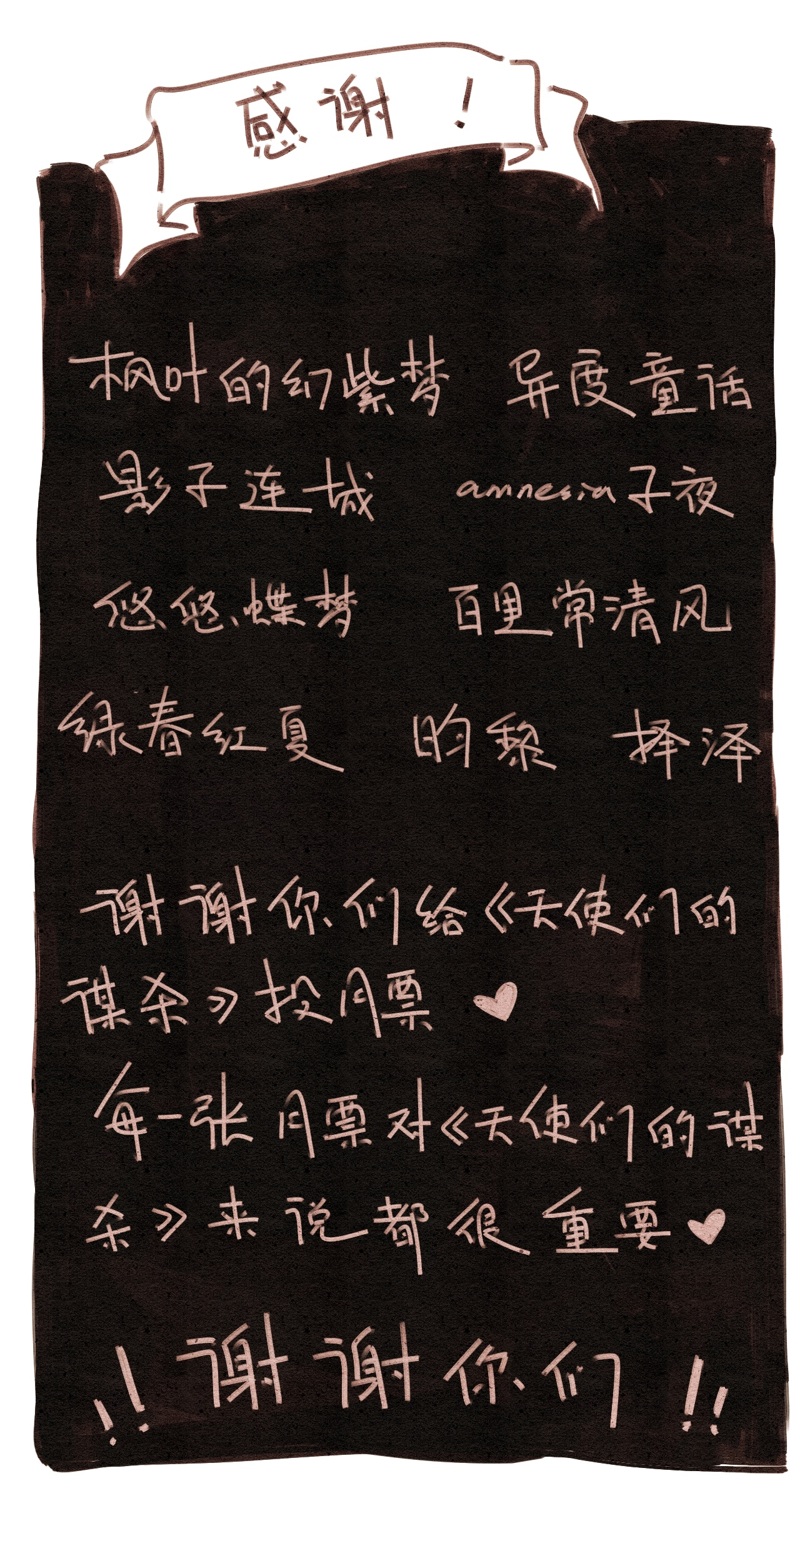 感谢！
枫叶的幻紫梦 异度童话
影子连城 amnesia子夜
悠悠、蝶梦 百里常清风
绿春红夏 昀黎 择泽
谢谢你们给《天使们的
谋杀》投月票♥
每一张月票对《天使们的谋
杀》来说都很重要♥
!! 谢谢你们 !!